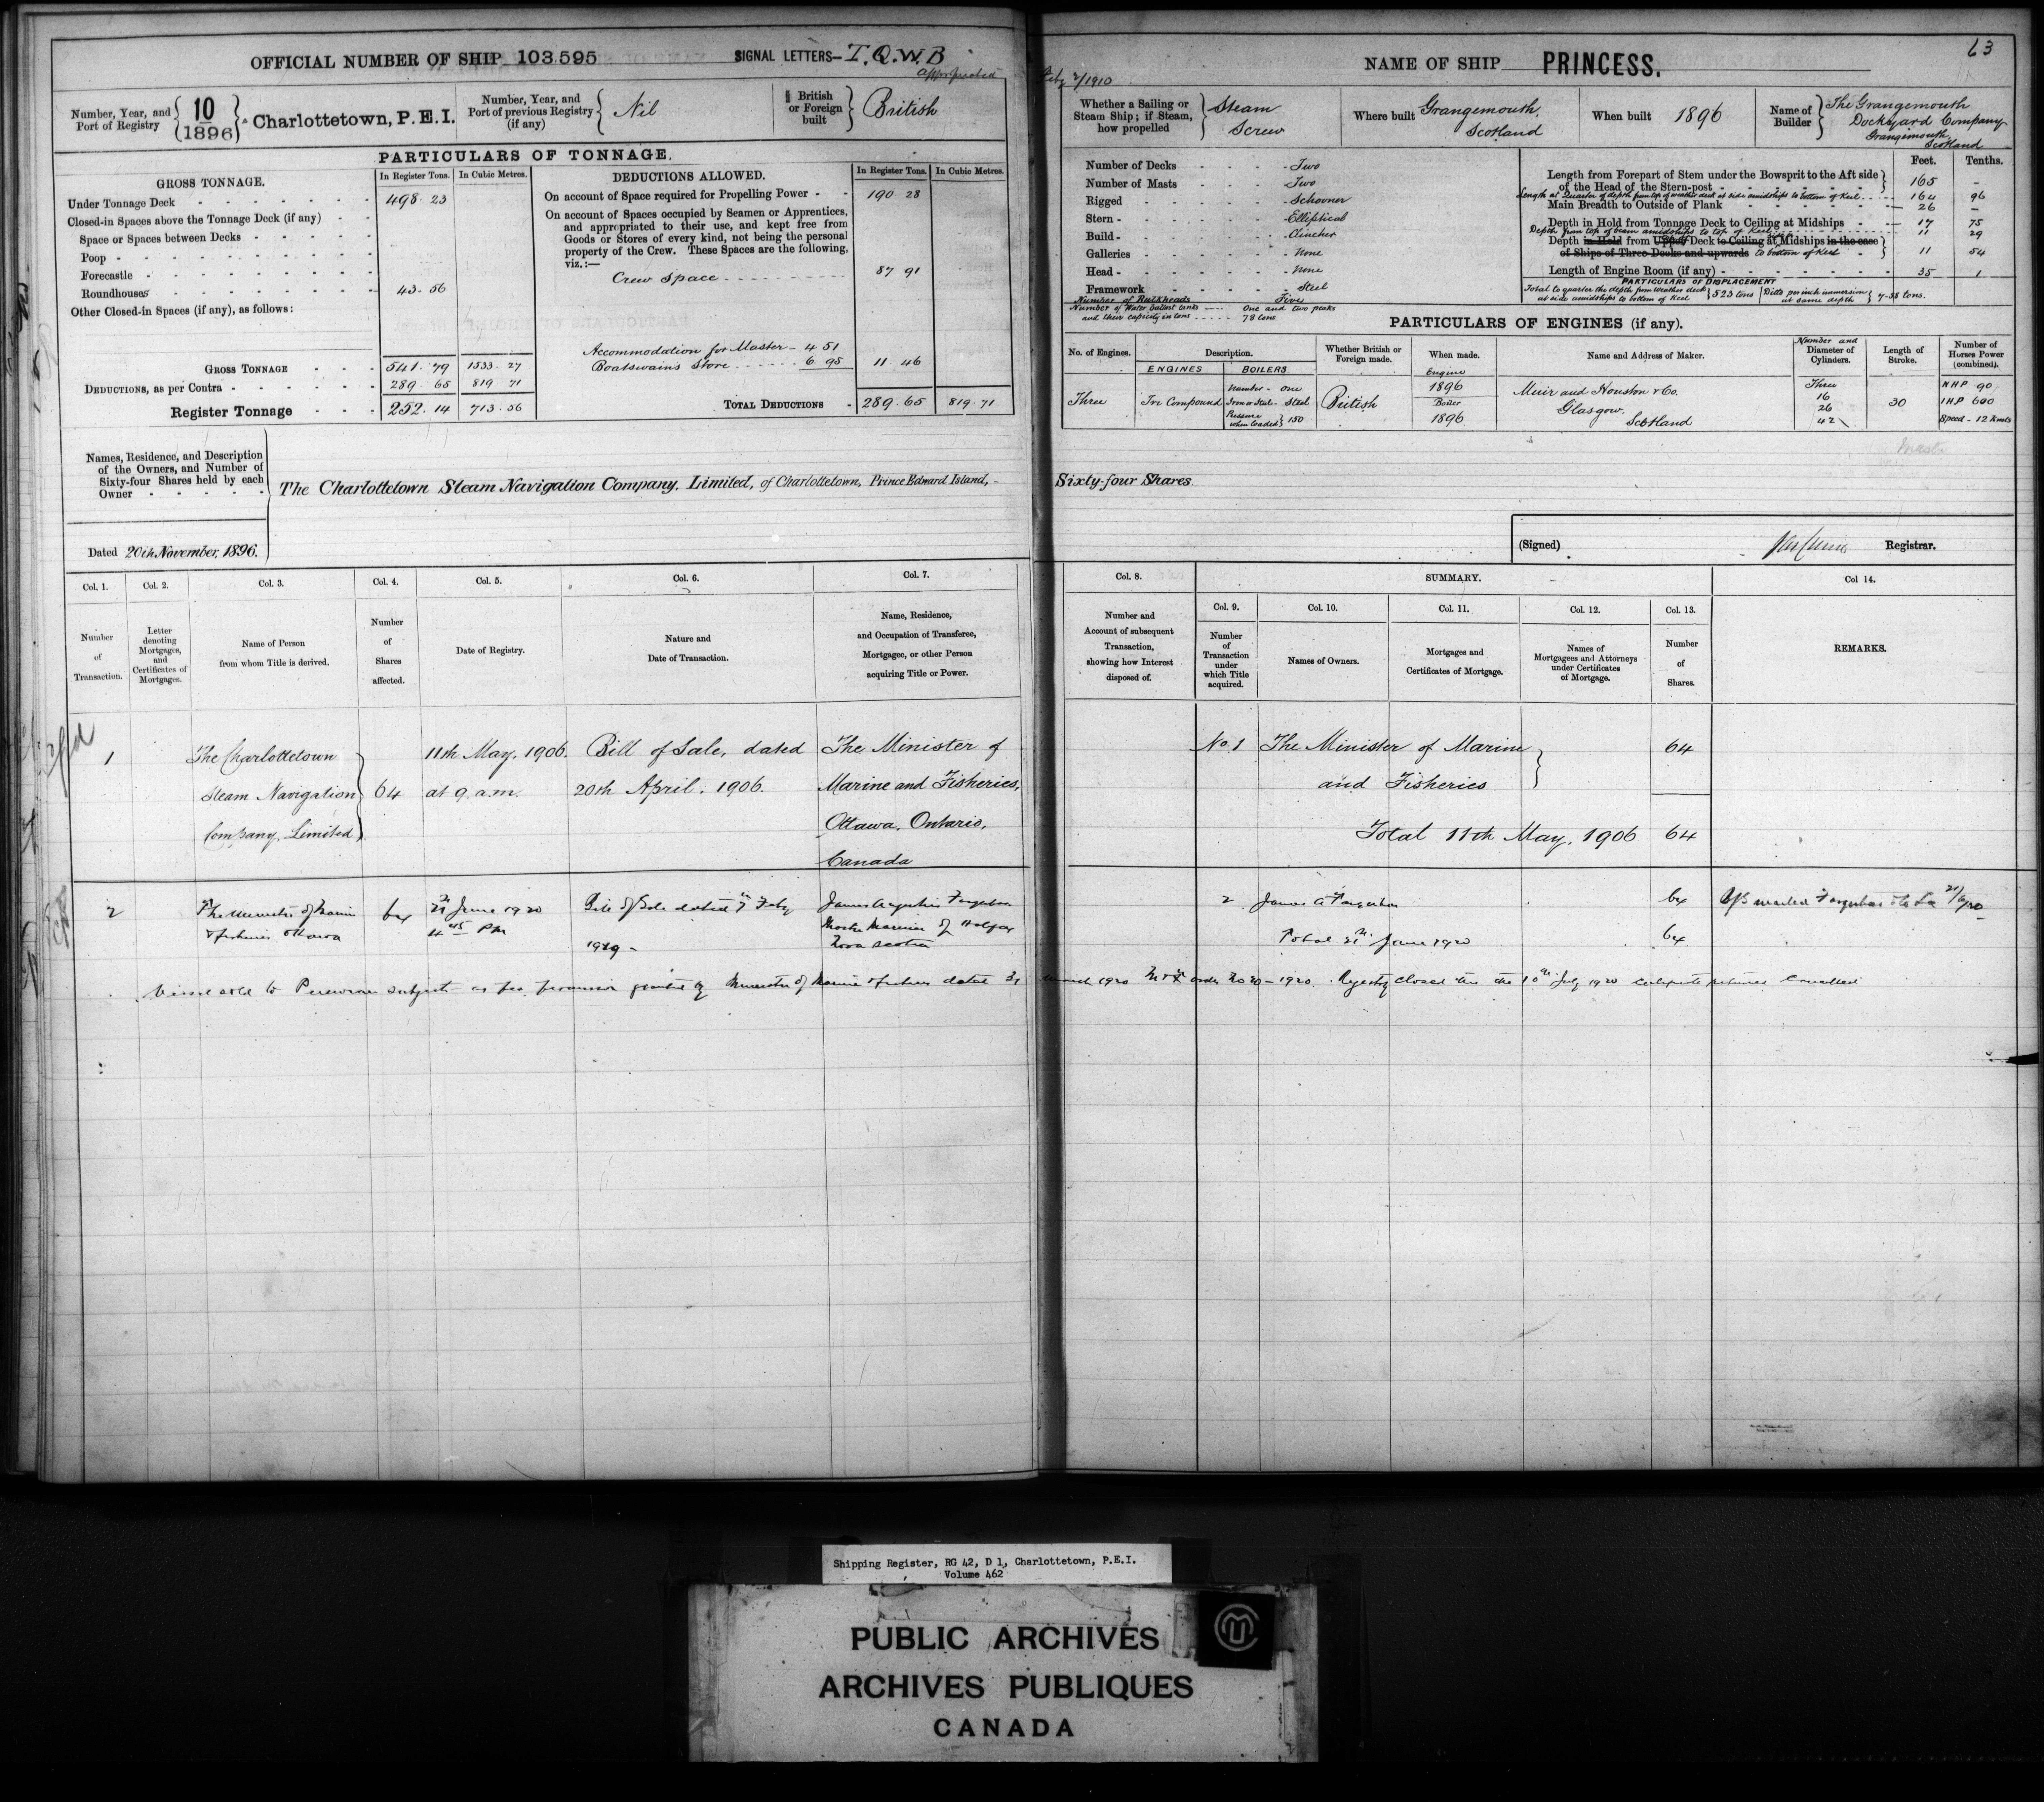 OFFICIAL NUMBER OF SHIP 103595 SIGNAL LETTERS— T.Q.W.B
appropriated Feby 2/1910
Number, Year, and Port of Registry { 10 1896 } Charlottetown, P.E.I.
Number, Year, and Port of previous Registry (if any) { Nil
British or Foreign built } British
PARTICULARS OF TONNAGE.
GROSS TONNAGE. In Register Tons. In Cubic Metres.
Under Tonnage Deck 498 . 23
Closed-in Spaces above the Tonnage Deck (if any)
Space or Spaces between Decks
Poop
Forecastle
Roundhouses 43. 56
Other Closed-in Spaces (if any), as follows:
GROSS TONNAGE 541. 79 1533. 27
DEDUCTIONS, as per Contra 289. 65 819 71
Register Tonnage 252. 14 713. 56
DEDUCTIONS ALLOWED. In Register Tons. In Cubic Metres.
On account of Space required for Propelling Power 190 28
On account of Spaces occupied by Seamen or Apprentices,
and appropriated to their use, and kept free from
Goods or Stores of every kind, not being the personal
property of the Crew. These Spaces are the following,
viz.:—
Crew Space 87 91
Accommodation for Master — 4 51
Boatswains Store 6 95 11. 46
TOTAL DEDUCTIONS 289. 65 819. 71
Names, Residence, and Description
of the Owners, and Number of
Sixty-four Shares held by each
Owner
The Charlottetown Steam Navigation Company, Limited, of Charlottetown, Prince Edward Island, — Sixty-four Shares
Dated 20th November, 1896.
63
NAME OF SHIP PRINCESS.
Whether a Sailing or Steam Ship; if Steam, how propelled } Steam Screw
Where built Grangemouth, Scotland
When built 1896
Name of Builder } The Grangemouth Dockyard Company Grangemouth, Scotland
Number of Decks Two
Number of Masts Two
Rigged Schooner
Stern Elliptical
Build Clincher
Galleries None
Head None
Framework Steel
Number of Bulkheads Five
Number of Water ballast tanks One and two peaks
and their capacity in tons 78 tons
Feet. Tenths.
Length from Forepart of Stem under the Bowsprit to the Aft side
of the Head of the Stern-post 165 -
Length at Quarter of depth from top of weather deck at side amidships to bottom of Keel 164 96
Main Breadth to Outside of Plank 26 —
Depth in Hold from Tonnage Deck to Ceiling at Midships 17 75
Depth from top of beam amidships to top of Keel 11 29
Depth in Hold from Upper Deck to Ceiling at Midships in the case
of Ships of Three Decks and upwards to bottom of Keel 11 54
Length of Engine Room (if any) 35 1
PARTICULARS OF DISPLACEMENT
Total to quarter the depth from weather deck at side amidships to bottom of Keel } 523 tons
Ditto per inch immersion at same depth } 7.38 tons.
PARTICULARS OF ENGINES (if any).
No. of Engines. Description. Whether British or Foreign made. When made. Name and Address of Maker. Number and Diameter of Cylinders. Length of Stroke. Number of Horses Power (combined).
ENGINES BOILERS
Three Tri Compound
Number - One
Iron or Steel - Steel
Pressure when loaded } 150
British
Engine 1896
Boiler 1896
Muir and Houston & Co.
Glasgow,
Scotland
Three
16
26
42
30
NHP 90
IHP 600
Speed - 12 Knots
(Signed) Registrar.
Col. 1. Col. 2. Col. 3. Col. 4. Col. 5. Col. 6. Col. 7. Col. 8. SUMMARY. Col 14.
Col. 9. Col. 10. Col. 11. Col. 12. Col. 13.
Number of Transaction.
Letter denoting Mortgages, and Certificates of Mortgages.
Name of Person from whom Title is derived.
Number of Shares affected.
Date of Registry.
Nature and Date of Transaction.
Name, Residence, and Occupation of Transferee, Mortgagee, or other Person acquiring Title or Power.
Number and Account of subsequent Transaction, showing how Interest disposed of.
Number of Transaction under which Title acquired.
Names of Owners.
Mortgages and Certificates of Mortgage.
Names of Mortgagees and Attorneys under Certificates of Mortgage.
Number of Shares.
REMARKS.
1 The Charlottetown 11th May, 1906. Bill of Sale, dated The Minister of No. 1 The Minister of Marine 64
Steam Navigation 64 at 9. a.m. 20th April. 1906. Marine and Fisheries, and Fisheries
Company, Limited Ottawa, Ontario, Total 11th May, 1906 64
Canada
2 The Minister of Marine 64 21 June 1920 Bill of Sale dated 7th Feby James Augustin Farquhar 2 James A Farquhar 64
& Fisheries Ottawa 4 PM 1920 Master Mariner of Halifax Total 21st June 1920 64
Nova Scotia
Vessel sold to Peruvian subjects as per permission granted by Minister of Marine & Fisheries dated 31 March 1920 order No 20 - 1920. Registry closed this the 10th July 1920 Certificate returned Cancelled
Shipping Register, RG 42, D 1, Charlottetown, P.E.I.
Volume 462
PUBLIC ARCHIVES
ARCHIVES PUBLIQUES
CANADA